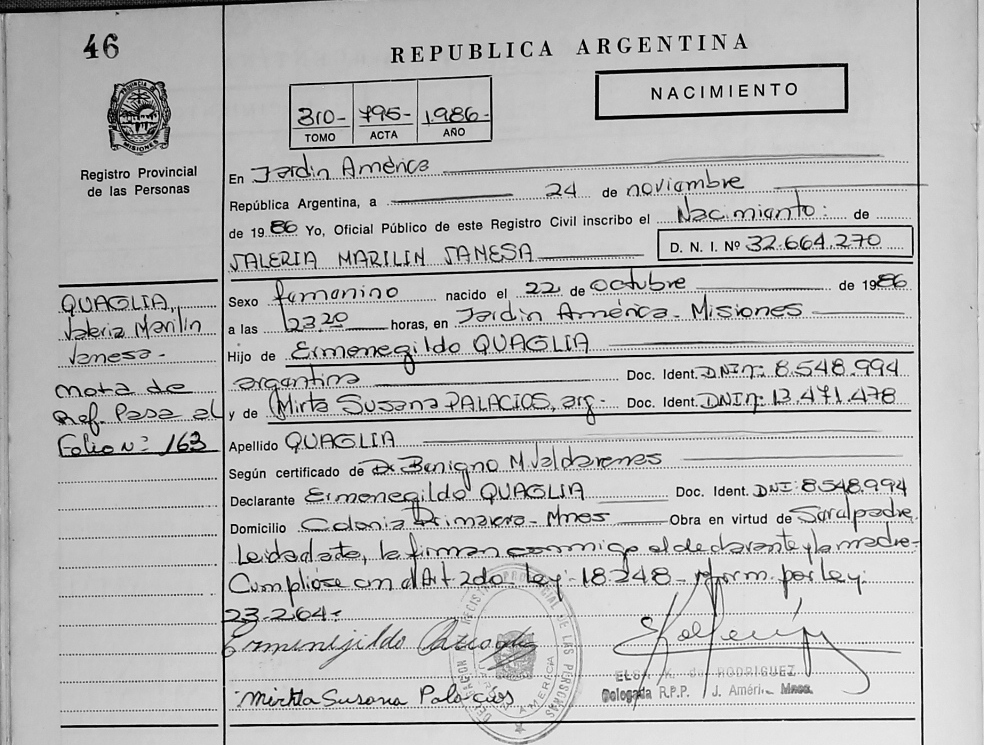 46
REPUBLICA ARGENTINA
PROVINCIA DE
MISIONES
310- 795- 1.986-
TOMO ACTA AÑO
NACIMIENTO
Registro Provincial
de las Personas
En Jardin América
República Argentina, a 24 de noviembre
de 1986 Yo, Oficial Público de este Registro Civil inscribo el Nacimiento: de
VALERIA MARILIN VANESA D. N. I. Nº 32.664.270
Sexo femenino nacido el 22 de octubre de 1986
a las 2320 horas, en Jardin América - Misiones
Hijo de Ermenegildo QUAGLIA
argentina Doc. Ident. DNI n: 8.548.994
y de Mirta Susana PALACIOS, arg- Doc. Ident. DNI n: 13.471.478
Apellido QUAGLIA
Según certificado de Dr Benigno M.
Declarante Ermenegildo QUAGLIA Doc. Ident. DNI: 8.548.994
Domicilio Colonia Primavera - Mnes Obra en virtud de Ser al padre
Leida el acta, la firman conmigo el declarante y la madre-
Cumpliose con el Art 2do. Ley: 18.248- reform. por ley:
23.264-
QUAGLIA,
Valeria Marilin
Vanesa -
nota de
Ref. Pasa al
Folio Nº 163
Mirtha Susana Palacios
DE LAS PERSONAS
RODRIGUEZ
Delegada R.P.P. J. Améri Mnes.